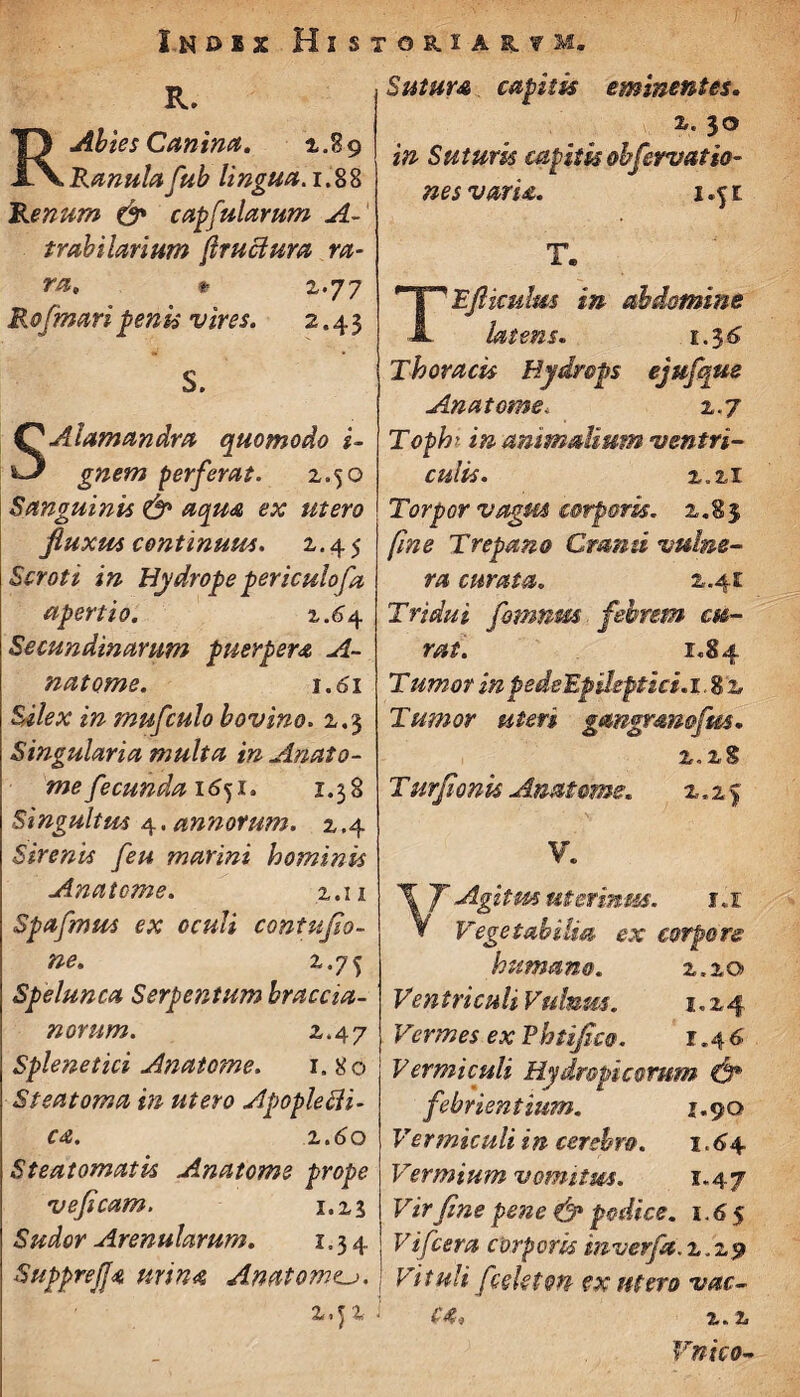 INDEX HISTORIARVM.
R.
RAbies Canina. 2.89
Ranula ſub lingua. 1.88
Renum & capſularum A-
trabilarium ſtructura ra-
ra. 2.77
Roſmari penis vires. 2.43
S.
SAlamandra quomodo i-
gnem perferat. 2.50
Sanguinis & aquæ ex utero
fluxus continuus. 2.45
Scroti in Hydrope periculoſa
apertio. 2.64
Secundinarum puerperæ A-
natome. 1.61
Silex in muſculo bovino. 2.3
Singularia multa in Anato-
me fecunda 1651. 1.38
Singultus 4. annorum. 2.4
Sirenis ſeu marini hominis
Anatome. 2.11
Spaſmus ex oculi contuſio-
ne. 2.75
Spelunca Serpentum braccia-
norum. 2.47
Splenetici Anatome. 1.80
Steatoma in utero Apoplecti-
cæ. 2.60
Steatomatis Anatome prope
veſicam. 1.23
Sudor Arenularum. 1.34
Suppreſſæ urinæ Anatome.
2.52
Suturæ capitis eminentes.
2.30
in Suturis capitis obſervatio-
nes variæ. 1.51
T.
TEſticulus in abdomine
latens. 1.36
Thoracis Hydrops ejuſque
Anatome. 2.7
Tophi in animalium ventri-
culis. 2.21
Torpor vagus corporis. 2.83
ſine Trepano Cranii vulne-
ra curata. 2.41
Tridui ſomnus febrem cu-
rat. 1.84
Tumor in pede Epileptici. 1.82
Tumor uteri gangrænoſus.
2.28
Turſionis Anatome. 2.25
V.
VAgitus uterinus. 1.1
Vegetabilia ex corpore
humano. 2.20
Ventriculi Vulnus. 1.24
Vermes ex Phtiſico. 1.46
Vermiculi Hydropicorum &
febrientium. 1.90
Vermiculi in cerebro. 1.64
Vermium vomitus. 1.47
Vir ſine pene & podice. 1.65
Viſcera corporis inverſa. 2.29
Vituli ſceleton ex utero vac-
cæ. 2.2
Vnico-